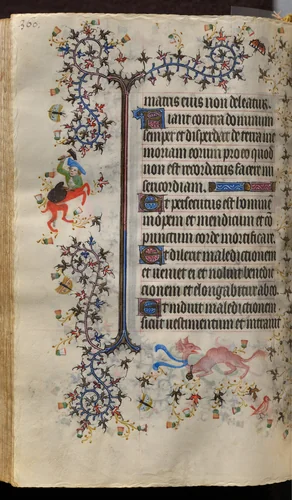 300.
matris eius non deleatur.
Fiant contra dominum
semper et disperdat de terra me
moriam eorum pro eo quod
non est recordatus facere mi
sericordiam.
Et persecutus est hominem
inopem et mendicum et co
punctum corde mortificare.
Et dilexit maledictionem
et veniet ei et noluit benedic
tionem et elongabitur ab eo.
Et induit maledictionem
sicut vestimentum et intravit